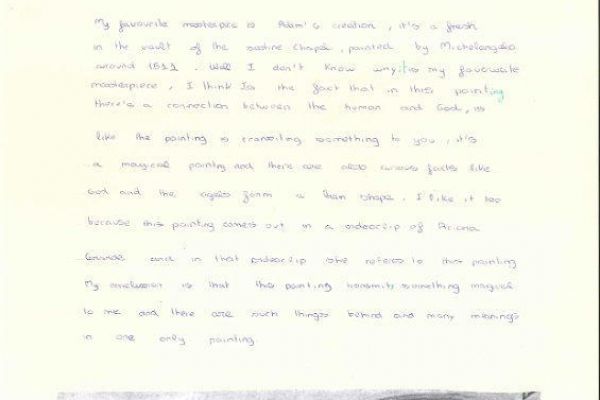 My favourite masterpiece is Adam's creation, it's a fresh
in the vault of the sixtine chapel, painted by Michelangelo
around 1511. Well I don't know why, tis my favourite
masterpiece, I think Is the fact that in this painting
there's a connection between the human and God, is
like the painting is transmiting something to you, it's
a magical painting and there are also curious facts like
God and the ages form a shape. I like it too
because this painting comes out in a videoclip of Ariana
Grande and in that videoclip she referes to this painting
My conclusion is that this painting transmits something magical
to me and there are such things behind and many meanings
in one only painting